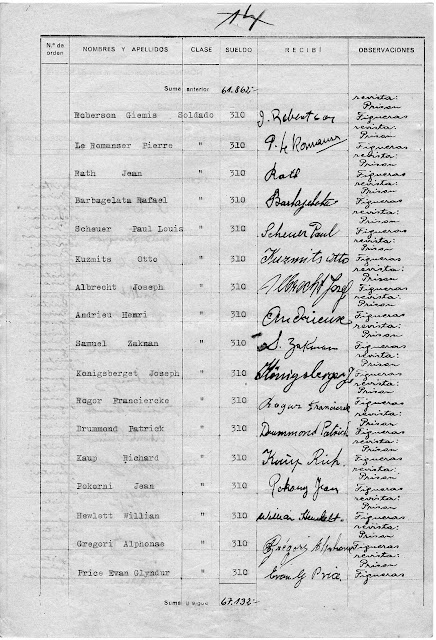 N.º de orden NOMBRES Y APELLIDOS CLASE SUELDO RECIBÍ OBSERVACIONES
Suma anterior 61.862
revista:
Prison
Roberson Giemis Soldado 310 J. Robertson Figueras
revista:
Prison
Le Romanser Pierre " 310 P. Le Romanser Figueras
revista:
Prison
Rath Jean " 310 Rath Figueras
revista:
Prison
Barbagelata Rafael " 310 Barbagelata Figueras
revista:
Prison
Scheuer Paul Louis " 310 Scheuer Paul Figueras
revista:
Prison
Kuzmits Otto " 310 Kuzmits Otto Figueras
revista:
Prison
Albrecht Joseph " 310 Albrecht Josef Figueras
revista:
Prison
Andrieu Henri " 310 Figueras
revista:
Prison
Samuel Zakman " 310 S. Zakman Figueras
revista:
Prison
Konigsberget Joseph " 310 Königsberger J Figueras
revista:
Prison
Rogor Franciercke " 310 Figueras
revista:
Prison
Drummond Patrick " 310 Drummond Patrick Figueras
revista:
Prison
Kaup Richard " 310 Kaup Rich. Figueras
revista:
Prison
Pokorni Jean " 310 Pokorny Jean Figueras
revista:
Prison
Hewlett Willian " 310 William Hewlett. Figueras
revista:
Prison
Gregori Alphonse " 310 Grégory Alphonse Figueras
revista:
Prison
Price Evan Glyndur " 310 Evan G Price Figueras
Suma y sigue 67.132